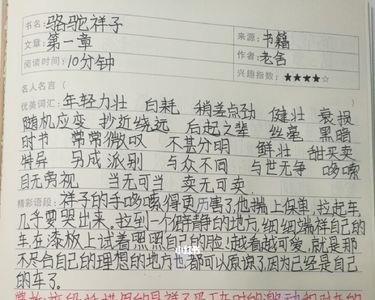 书名:骆驼祥子 来源:书籍
文章:第一章 作者:老舍
阅读时间:10分钟 兴趣指数:★★★★☆
名人名言(
优美词汇:年轻力壮 白耗 稍差点劲 健壮 衰损
随机应变 抄近绕远 后起之辈 丝毫 黑暗
时节 常常微叹 不甚分明 鲜壮 甜买卖
特异 另成派别 与众不同 与世无争 哆嗦
目无旁视 当无可当 卖无可卖
精彩语段:祥子的手哆嗦得更厉害了,他揣上保单,拉起车,
几乎要哭出来。拉到一个僻静的地方,细细端详自己的
车,在漆板上试着照照自己的脸!越看越可爱,就是那
不尽合自己的理想的地方也都可以原谅了,因为已经是自己
的车了。